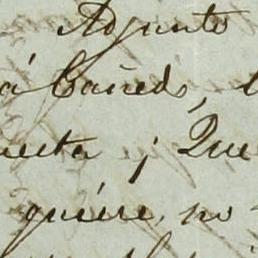 Adjunto
á Cañeds,
ecta ; Que
quiere, no